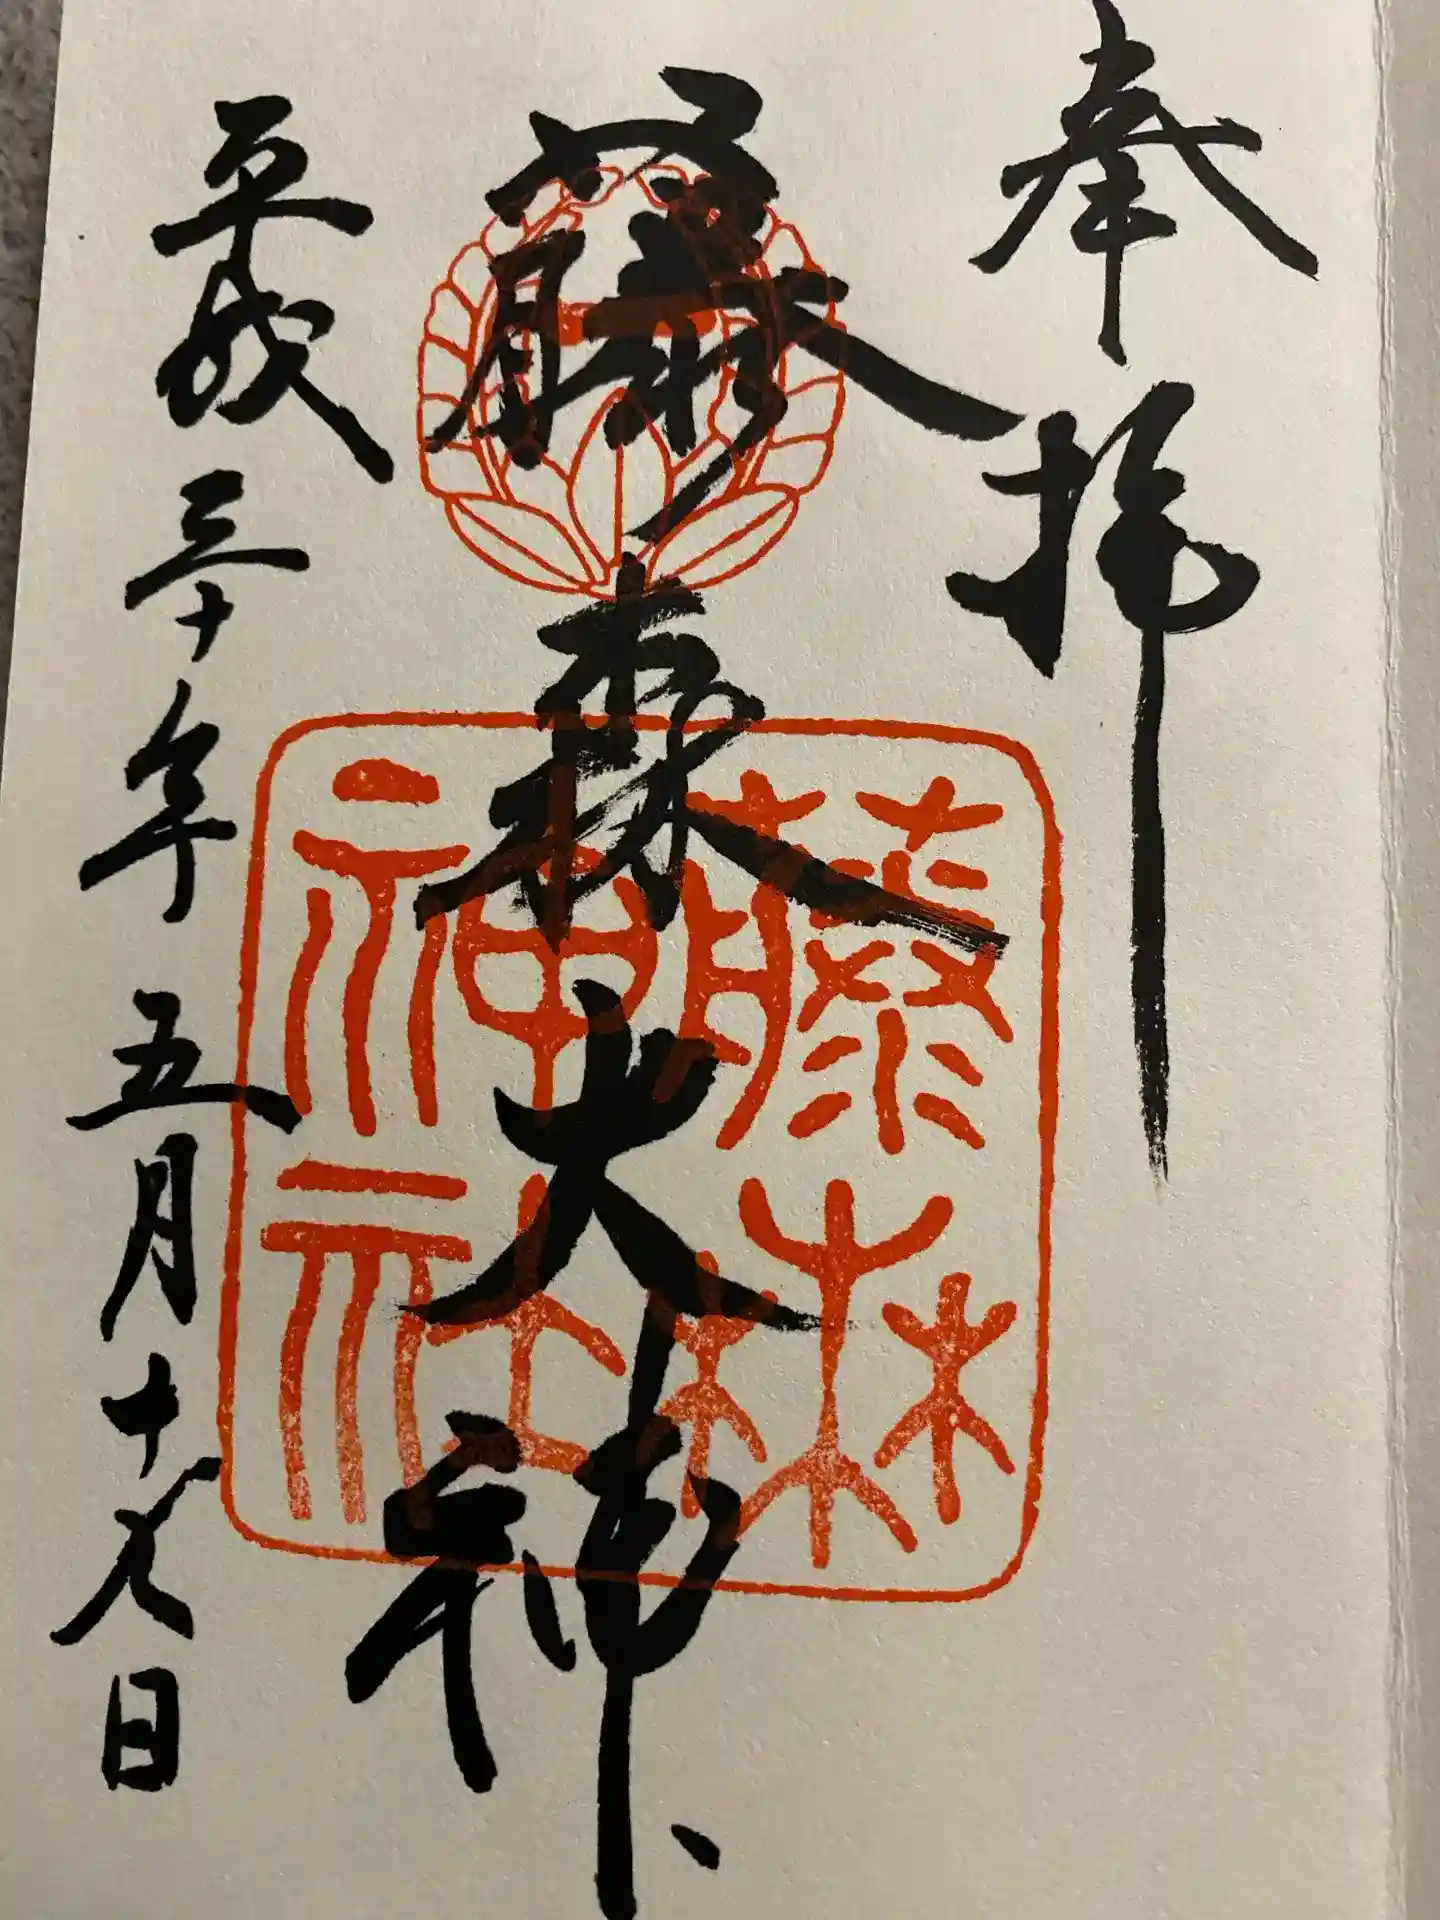 奉拝
藤森大神
藤森
神社
平成三十年五月十日